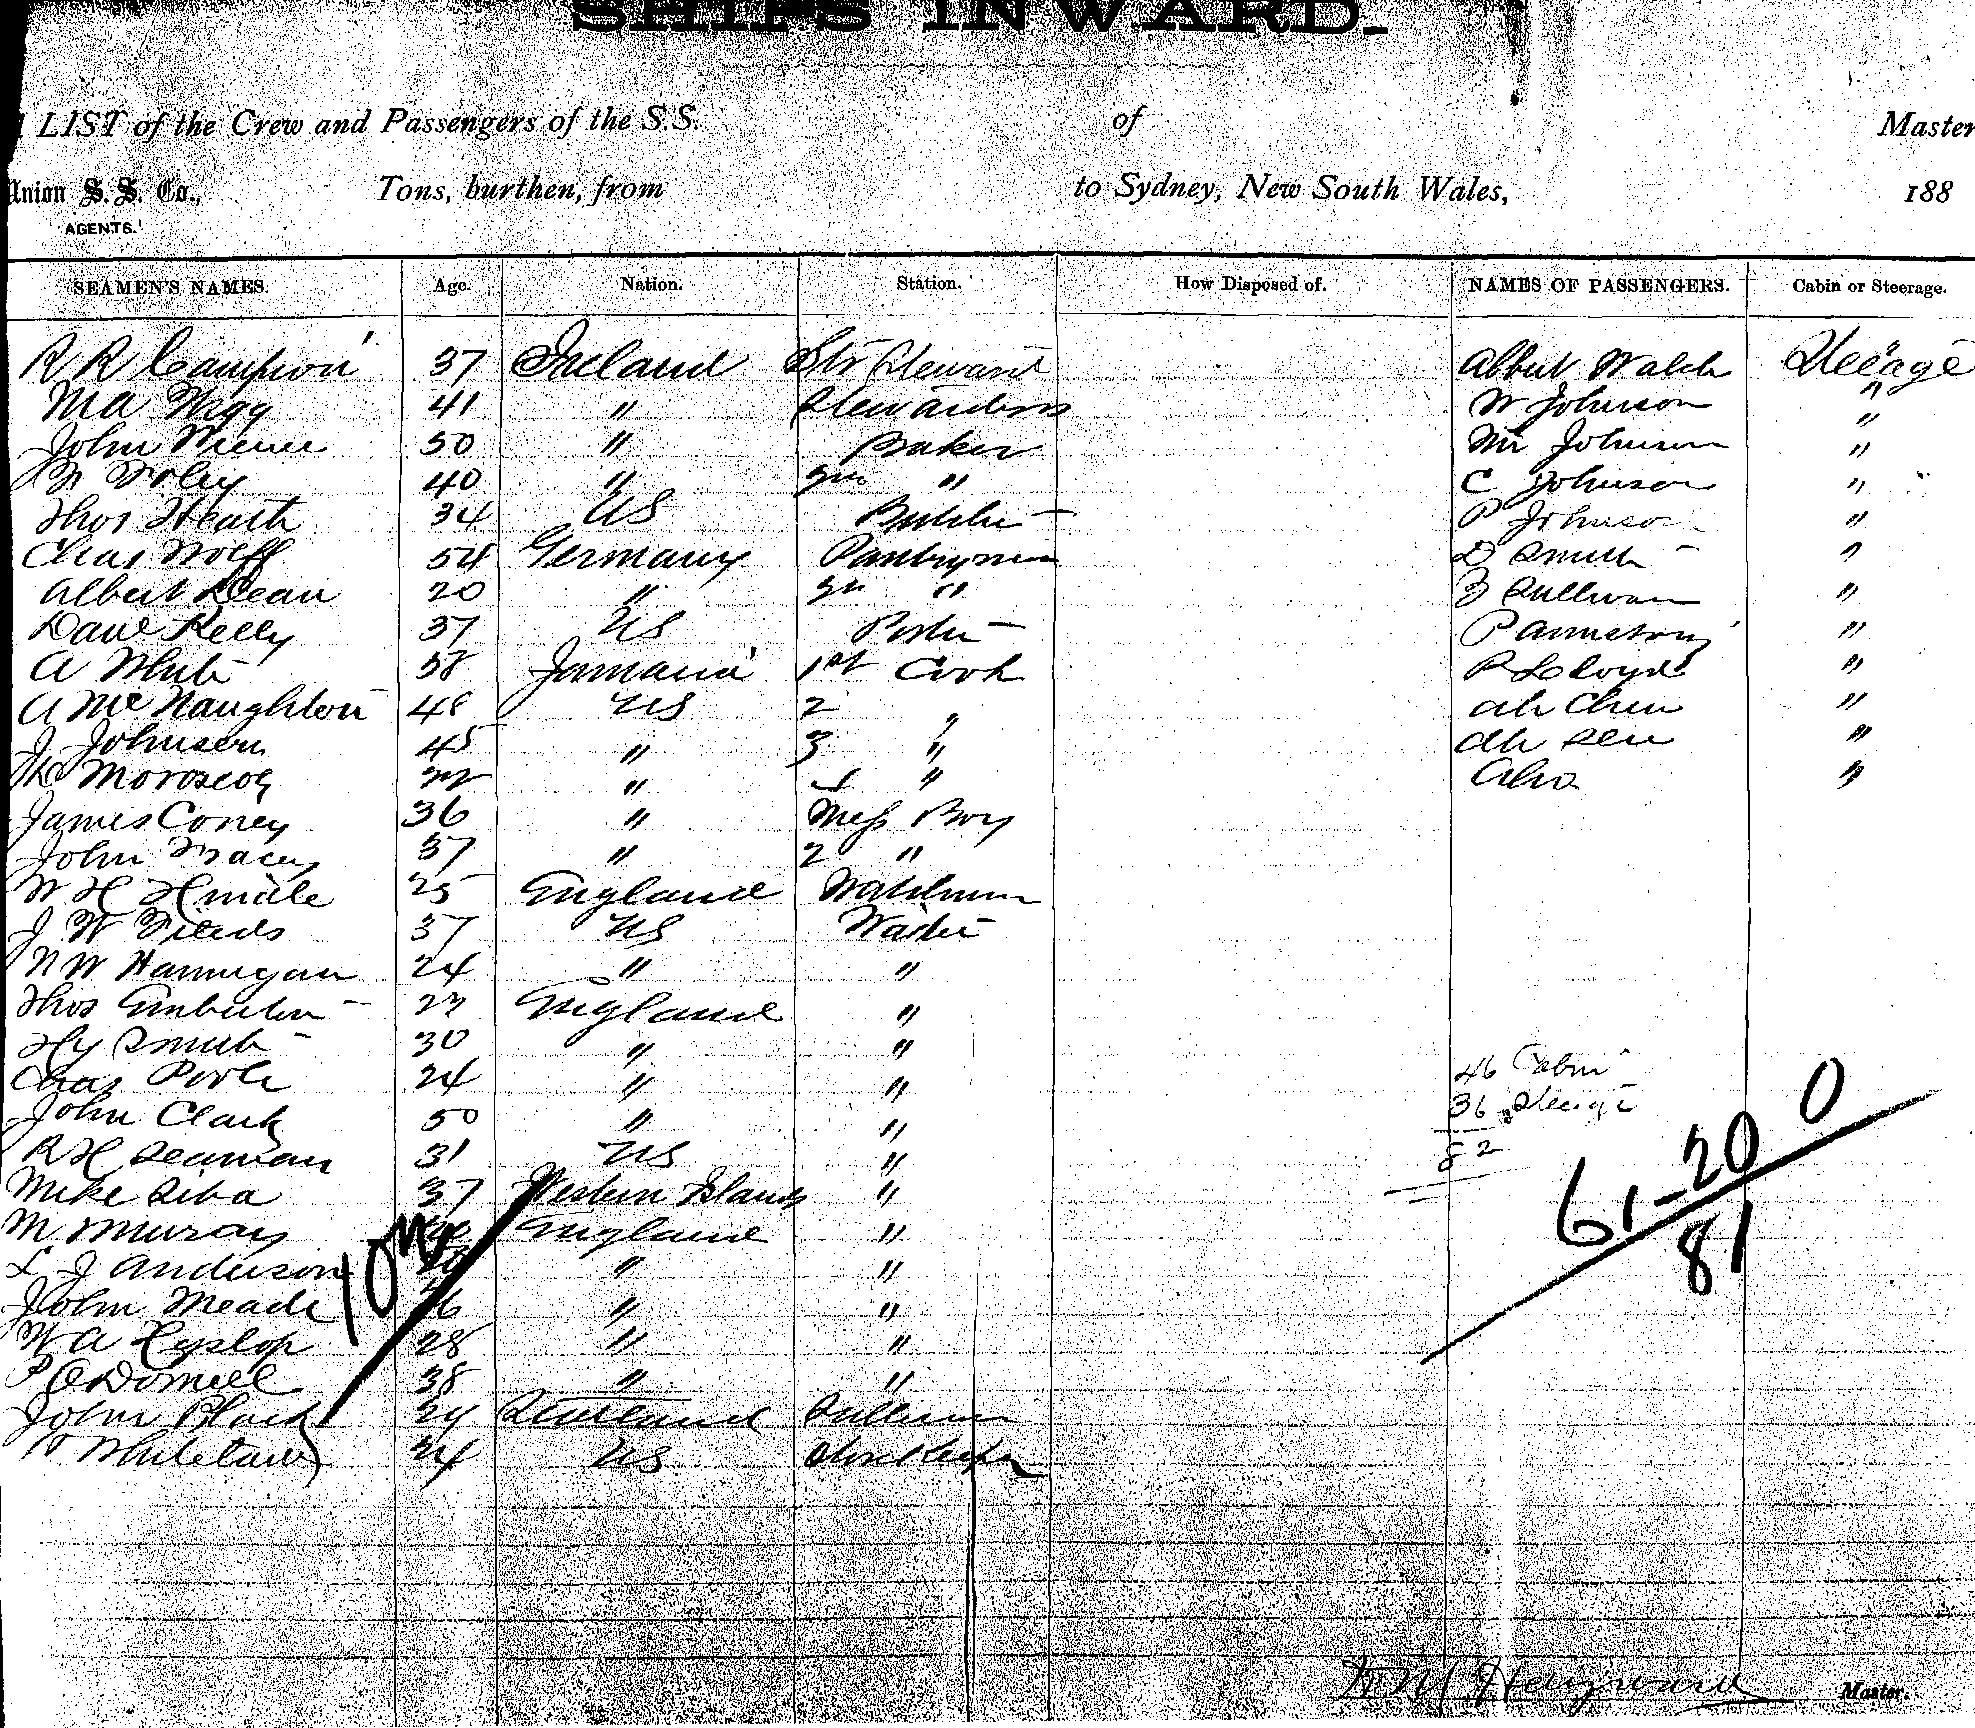 SHIPS INWARD.
LIST of the Crew and Passengers of the S.S. of Master
Union S. S. Co., Tons, burthen, from to Sydney, New South Wales, 188
AGENTS.
SEAMEN'S NAMES. Age. Nation. Station. How Disposed of. NAMES OF PASSENGERS. Cabin or Steerage.
R R Campion 37 Ireland Str Steward Albert Walsh Steerage
41 " Stewardess W Johnson "
John 50 " Baker Mr Johnson "
Foley 40 " " C Johnson "
Thos Heath 34 US Butcher P Johnson "
Chas Wolff 54 Germany Pantryman D Smith "
Albert Dean 20 " " Sullivan "
Dave Kelly 37 US Porter P "
A White 58 Jamaica 1st Cook Lloyd "
A McNaughton 48 US 2 " Ah "
J Johnson 45 " 3 " Ah "
Moroscoe " " "
James Coney 36 " Mess Boy
John Tracey 37 " 2 "
W H 25 England Watchman
J W Fields 37 US Waiter
N W Hannigan 24 " "
Thos England "
Hy Smith 30 " "
Chas Poole 24 " " 46 Cabin
John Clark 50 " " 36 Steerage
R H Seaman 31 US " 82
Mike Silva 37 Western Islands "
M Murray England "
L J Anderson " "
John Meade " "
W A Hyslop 28 " "
P O'Donnell 38 " "
John Black Scotland
Whitelaw 24 US Storekeeper
61-20 0
81
Hayward Master.